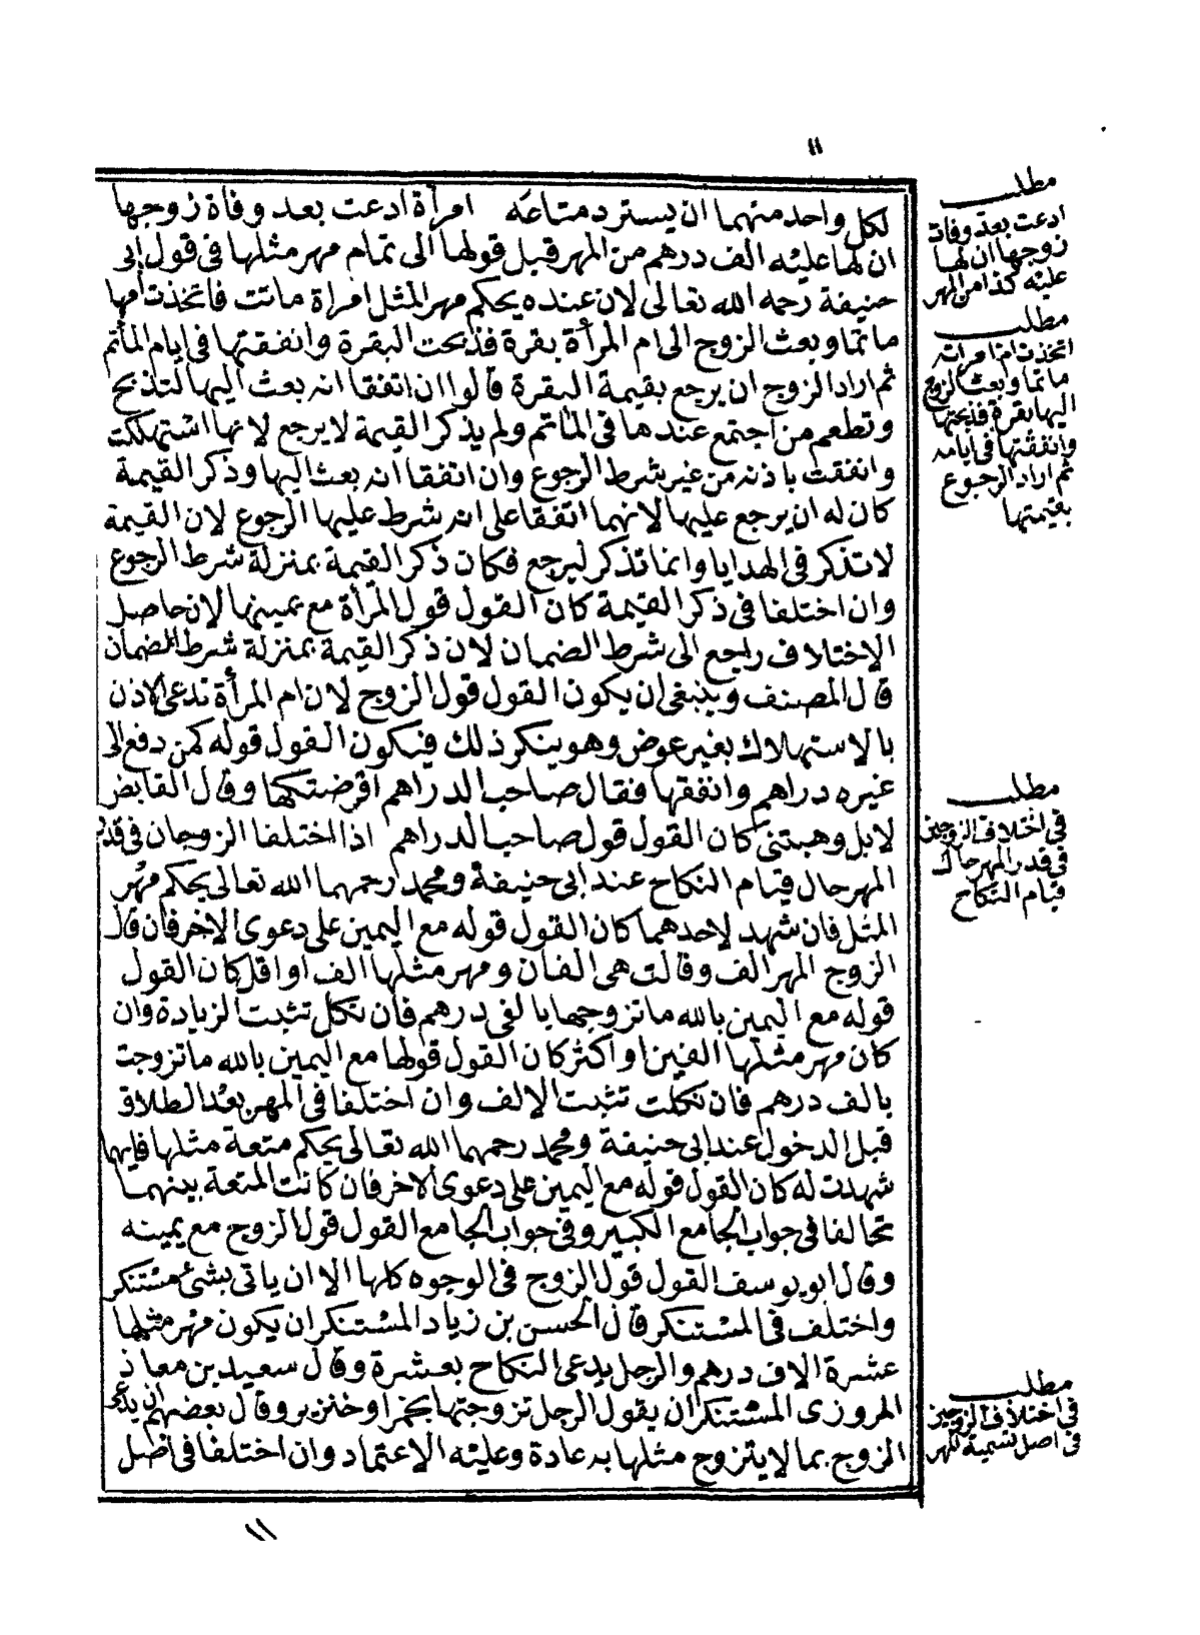 ١١
لكل واحد منهما ان يسترد متاعه امرأة ادعت بعد وفاة زوجها
ان لها عليه الف درهم من المهر قبل قولها الى تمام مهر مثلها فى قول ابى
حنيفة رحمه الله تعالى لان عنده يحكم مهر المثل امرأة ماتت فاتخذت امها
ماتما وبعث الزوج الى ام المرأة بقرة فذبحت البقرة وانفقتها فى ايام المأتم
ثم اراد الزوج ان يرجع بقيمة البقرة قالوا ان اتفقا انه بعث اليها لتذبح
وتطعم من اجتمع عندها فى المأتم ولم يذكر القيمة لا يرجع لانها استهلكت
وانفقت باذنه من غير شرط الرجوع وان اتفقا انه بعث اليها وذكر القيمة
كان له ان يرجع عليها لانهما اتفقا على انه شرط عليها الرجوع لان القيمة
لا تذكر فى الهدايا وانما تذكر ليرجع فكان ذكر القيمة بمنزلة شرط الرجوع
وان اختلفا فى ذكر القيمة كان القول قول المرأة مع يمينها لان حاصل
الاختلاف راجع الى شرط الضمان لان ذكر القيمة بمنزلة شرط الضمان
قال المصنف وينبغى ان يكون القول قول الزوج لان ام المرأة تدعى الاذن
بالاستهلاك بغير عوض وهو ينكر ذلك فيكون القول قوله كمن دفع الى
غيره دراهم وانفقها فقال صاحب الدراهم اقرضتكها وقال القابض
لا بل وهبتنى كان القول قول صاحب الدراهم اذا اختلفا الزوجان فى قدر
المهر حال قيام النكاح عند ابى حنيفة ومحمد رحمهما الله تعالى يحكم مهر
المثل فان شهد لاحدهما كان القول قوله مع اليمين على دعوى الاخر فان قال
الزوج المهر الف وقالت هى الفان ومهر مثلها الف او اقل كان القول
قوله مع اليمين بالله ما تزوجها بالفى درهم فان نكل تثبت الزيادة وان
كان مهر مثلها الفين او اكثر كان القول قولها مع اليمين بالله ما تزوجت
بالف درهم فان نكلت تثبت الالف وان اختلفا فى المهر بعد الطلاق
قبل الدخول عند ابى حنيفة ومحمد رحمهما الله تعالى يحكم متعة مثلها فايهما
شهدت له كان القول قوله مع اليمين على دعوى الاخر فان كانت المتعة بينهما
تحالفا فى جواب الجامع الكبير وفى جواب الجامع القول قول الزوج مع يمينه
وقال ابو يوسف القول قول الزوج فى الوجوه كلها الا ان ياتى بشئ مستنكر
واختلف فى المستنكر قال الحسن بن زياد المستنكر ان يكون مهر مثلها
عشرة الاف درهم والرجل يدعى النكاح بعشرة وقال سعيد بن معاذ
المروزى المستنكر ان يقول الرجل تزوجتها بخمر او خنزير وقال بعضهم ان يدعى
الزوج بما لا يتزوج مثلها به عادة وعليه الاعتماد وان اختلفا فى اصل
مطلب
ادعت بعد وفات
زوجها ان لها
عليه كذا من المهر
مطلب
اتخذت ام امرأته
ماتما وبعث الزوج
اليها بقرة فذبحتها
وانفقتها فى ايامه
ثم اراد الرجوع
بقيمتها
مطلب
فى اختلاف الزوجين
فى قدر المهر حال
قيام النكاح
مطلب
فى اختلاف الزوجين
فى اصل تسمية المهر
١١